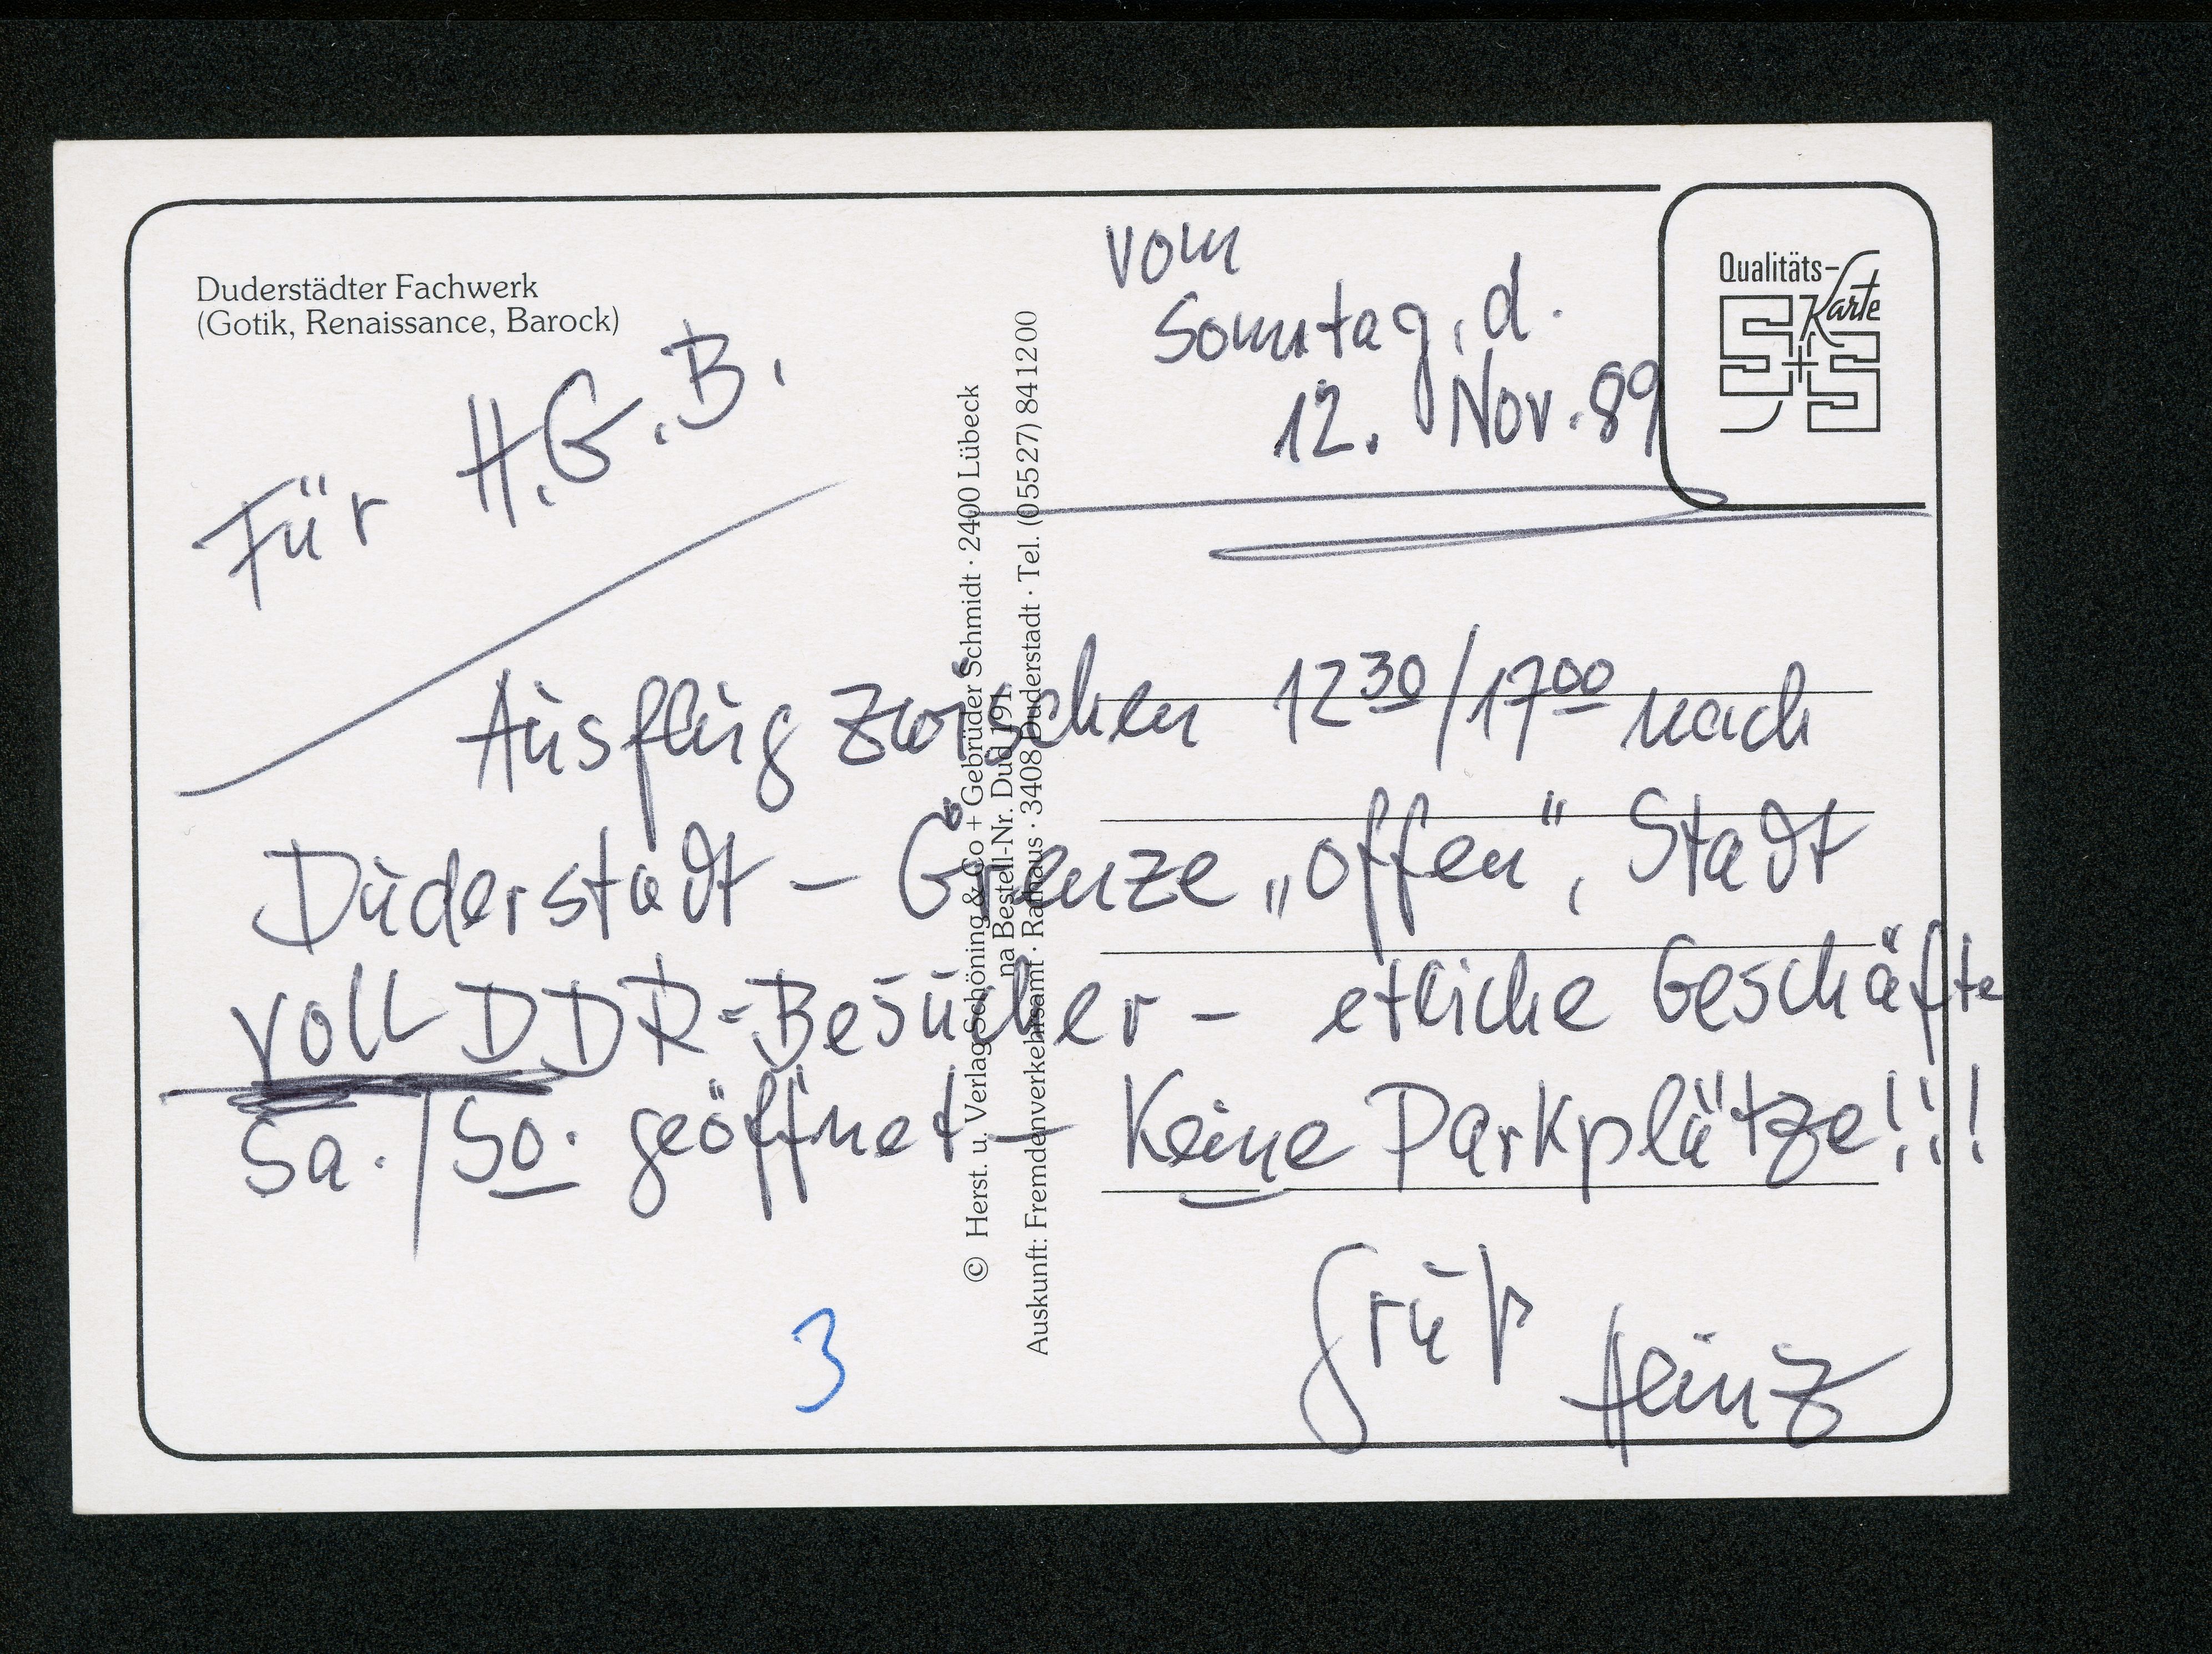 Duderstädter Fachwerk
(Gotik, Renaissance, Barock)
Für H.G.B.
vom
Sonntag, d.
12. Nov. 89
Qualitäts-
Karte
S+S
Ausflug zwischen 12³⁰/17⁰⁰ nach
Duderstadt – Grenze „offen“, Stadt
voll DDR-Besucher – etliche Geschäfte
Sa./So. geöffnet – Keine Parkplätze!!!
Gruß Heinz
3
© Herst. u. Verlag Schöning & Co + Gebrüder Schmidt · 2400 Lübeck
na Bestell-Nr. Dud 191
Auskunft: Fremdenverkehrsamt · Rathaus · 3408 Duderstadt · Tel. (05527) 841200